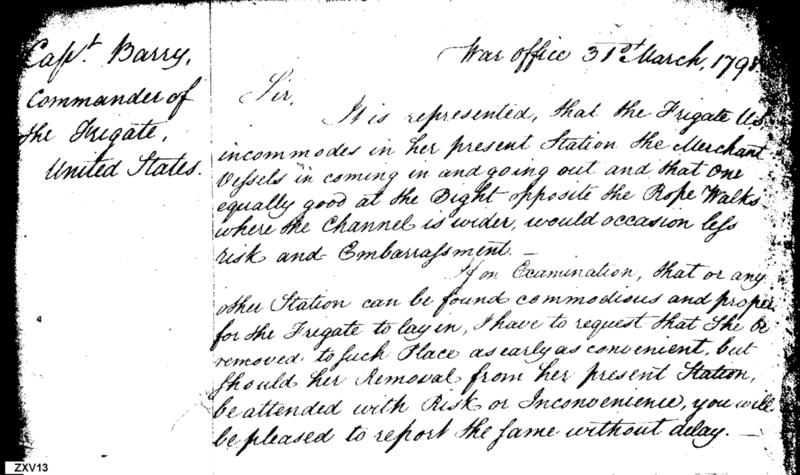 Capt. Barry,
Commander of
the Frigate,
United States.
War office 31st March, 1798.
Sir,
It is represented, that the Frigate US,
incommodes in her present Station the Merchant
Vessels in coming in and going out and that one
equally good at the Bight opposite the Rope Walks
where the Channel is wider, would occasion less
risk and Embarrassment. —
If on Examination, that or any
other Station can be found commodious and proper
for the Frigate to lay in, I have to request that She be
removed to such Place as early as convenient, but
should her Removal from her present Station,
be attended with Risk or Inconvenience, you will
be pleased to report the same without delay. —
ZXV13